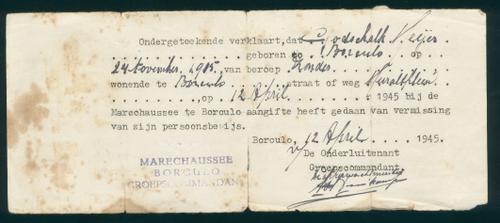 Ondergeteekende verklaart, dat Godschalk Meijer
geboren te Borculo op
24 November 1905, van beroep zonder
wonende te Borculo straat of weg
op 12 April 1945 bij de
Marechaussee te Borculo aangifte heeft gedaan van vermissing
van zijn persoonsbewijs.
Borculo, 12 April 1945.
De Onderluitenant
Groepscommandant,
MARECHAUSSEE
BORCULO
GROEPSCOMMANDANT